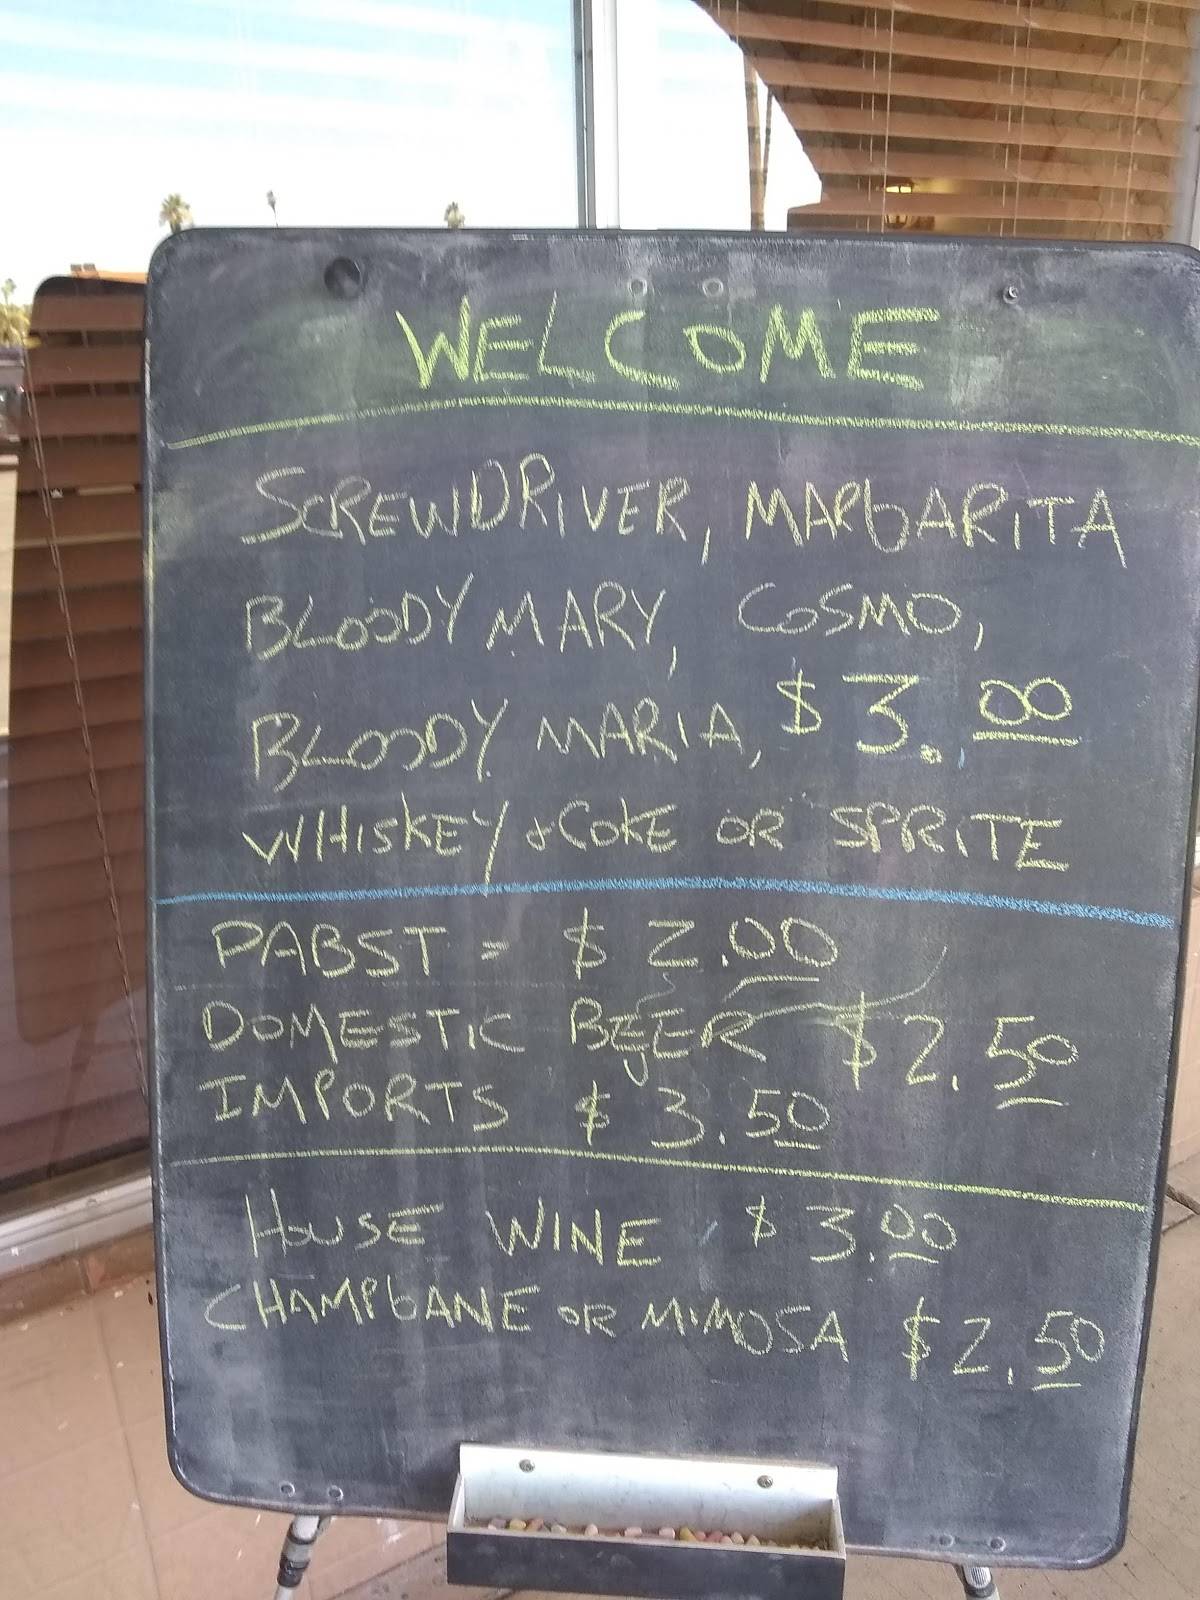 WELCOME
SCREWDRIVER, MARGARITA
BLOODY MARY, COSMO,
BLOODY MARIA, $3.00
WHISKEY & COKE OR SPRITE
PABST = $2.00
DOMESTIC BEER $2.50
IMPORTS $3.50
HOUSE WINE $3.00
CHAMPGANE OR MIMOSA $2.50